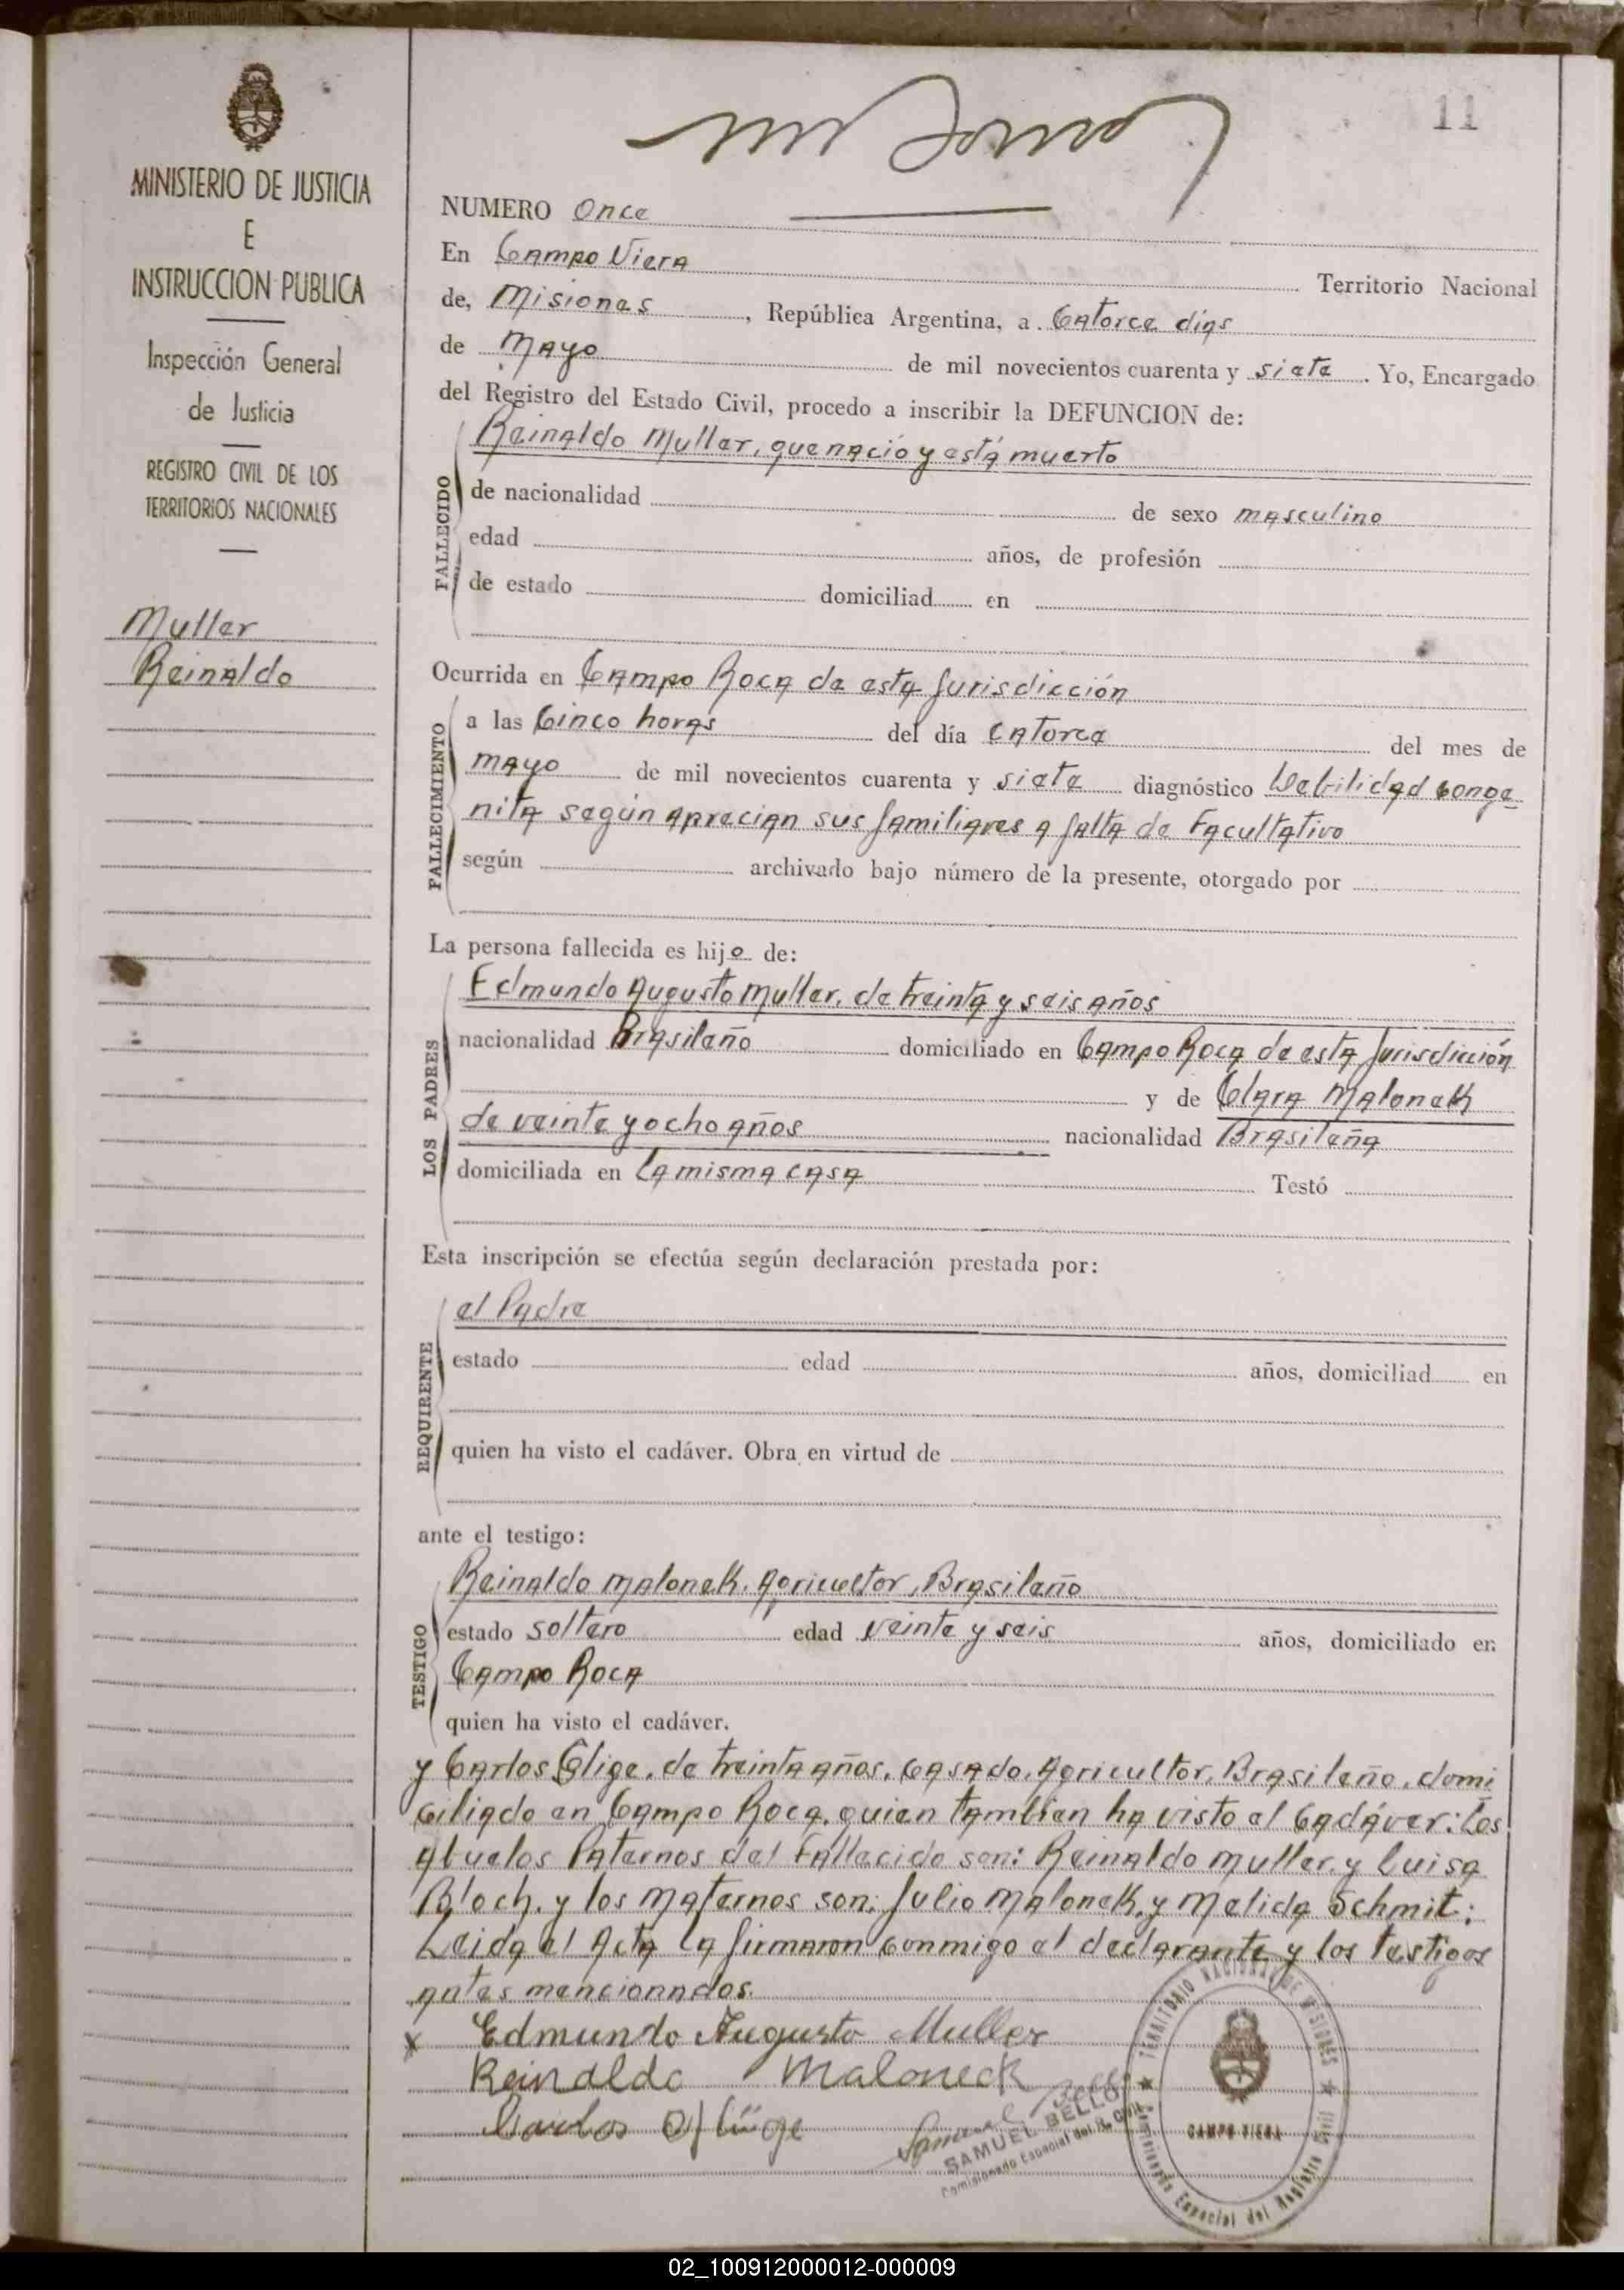 11
NUMERO Once
En Campo Viera Territorio Nacional
de, Misiones, República Argentina, a Catorce días
de Mayo de mil novecientos cuarenta y siete. Yo, Encargado
del Registro del Estado Civil, procedo a inscribir la DEFUNCION de:
Reinaldo Muller, que nació y está muerto
de nacionalidad de sexo masculino
edad años, de profesión
de estado domiciliad en
FALLECIDO
Ocurrida en Campo Roca de esta Jurisdicción
a las Cinco horas del día Catorce del mes de
mayo de mil novecientos cuarenta y siete diagnóstico Debilidad Conge
nita según aprecian sus familiares a falta de Facultativo
según archivado bajo número de la presente, otorgado por
FALLECIMIENTO
La persona fallecida es hijo de:
Edmundo Augusto Muller, de treinta y seis años
nacionalidad Brasileño domiciliado en Campo Roca de esta Jurisdicción
y de Clara Malonek
de veinte y ocho años nacionalidad Brasileña
domiciliada en La misma casa Testó
LOS PADRES
Esta inscripción se efectúa según declaración prestada por:
el Padre
estado edad años, domiciliad en
quien ha visto el cadáver. Obra en virtud de
REQUIRENTE
ante el testigo:
Reinaldo Malonek, Agricultor, Brasileño
estado soltero edad veinte y seis años, domiciliado en
Campo Roca
quien ha visto el cadáver.
TESTIGO
y Carlos de treinta años, Casado, Agricultor, Brasileño, domi
ciliado en Campo Roca, quien tambien ha visto el Cadáver: Los
abuelos Paternos del Fallecido son: Reinaldo Muller, y Luisa
Bloch, y los maternos son: Julio Malonek, y Melida Schmit;
Leida el Acta la firmaron conmigo el declarante y los testigos
antes mencionados.
x Edmundo Augusto Muller
Reinaldo Maloneck
Carlos
Samuel Bello
SAMUEL BELLO
Comisionado Especial del R. Civil
TERRITORIO NACIONAL DE MISIONES
CAMPO VIERA
Comisionado Especial del Registro Civil
MINISTERIO DE JUSTICIA
E
INSTRUCCION PUBLICA
Inspección General
de Justicia
REGISTRO CIVIL DE LOS
TERRITORIOS NACIONALES
Muller
Reinaldo
02_100912000012-000009